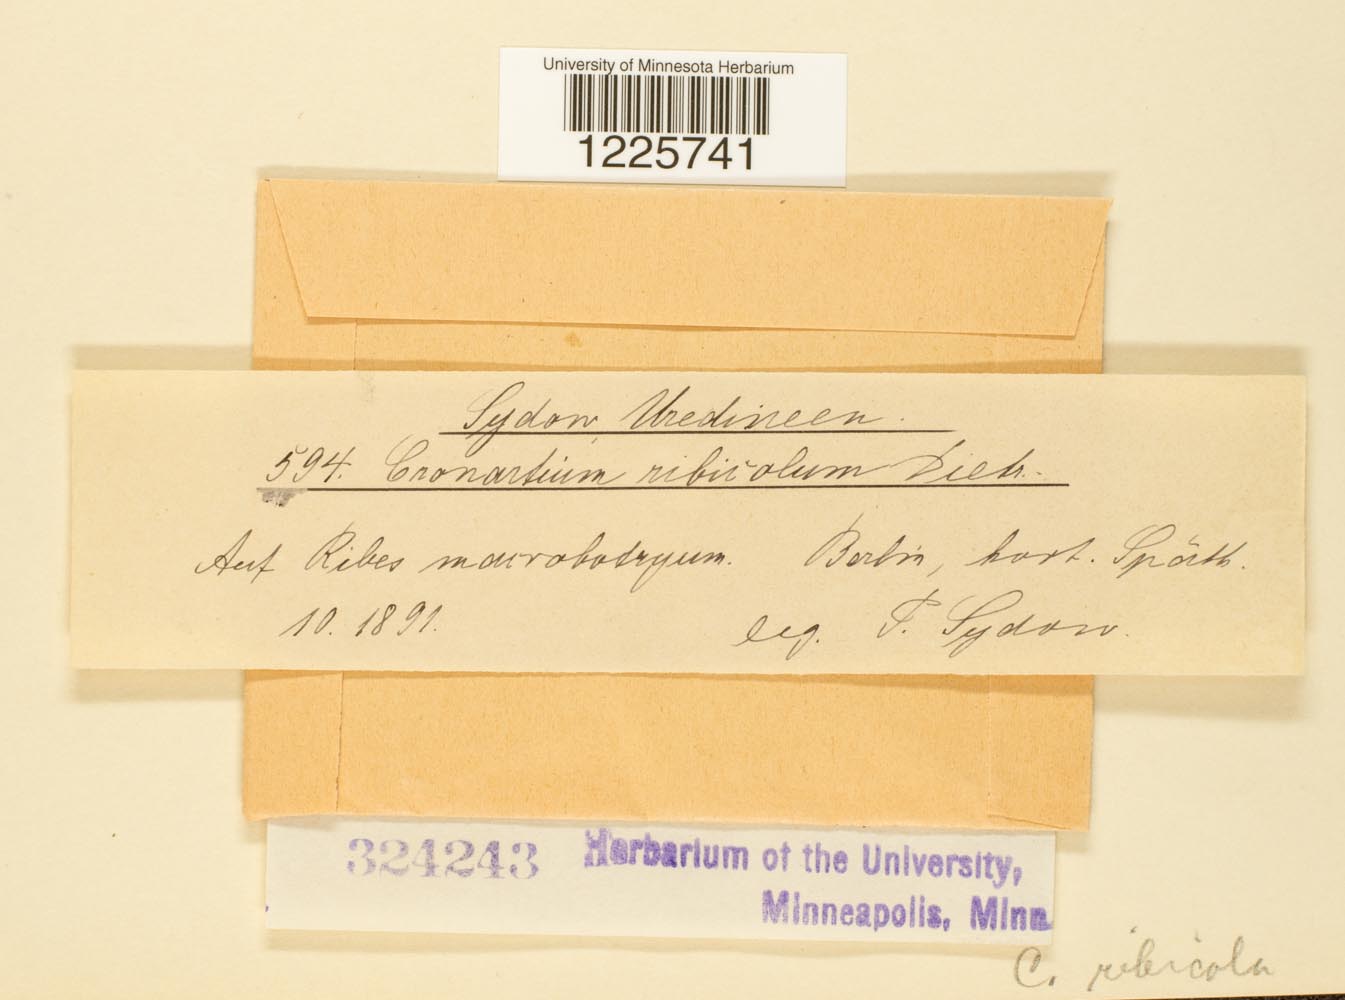 University of Minnesota Herbarium
1225741
Sydow, Uredineen.
594. Cronartium ribicolum Dietr.
Auf Ribes macrobotryum. Berlin, hort. Späth.
10. 1891. leg. P. Sydow.
324243 Herbarium of the University,
Minneapolis, Minn
C. ribicola